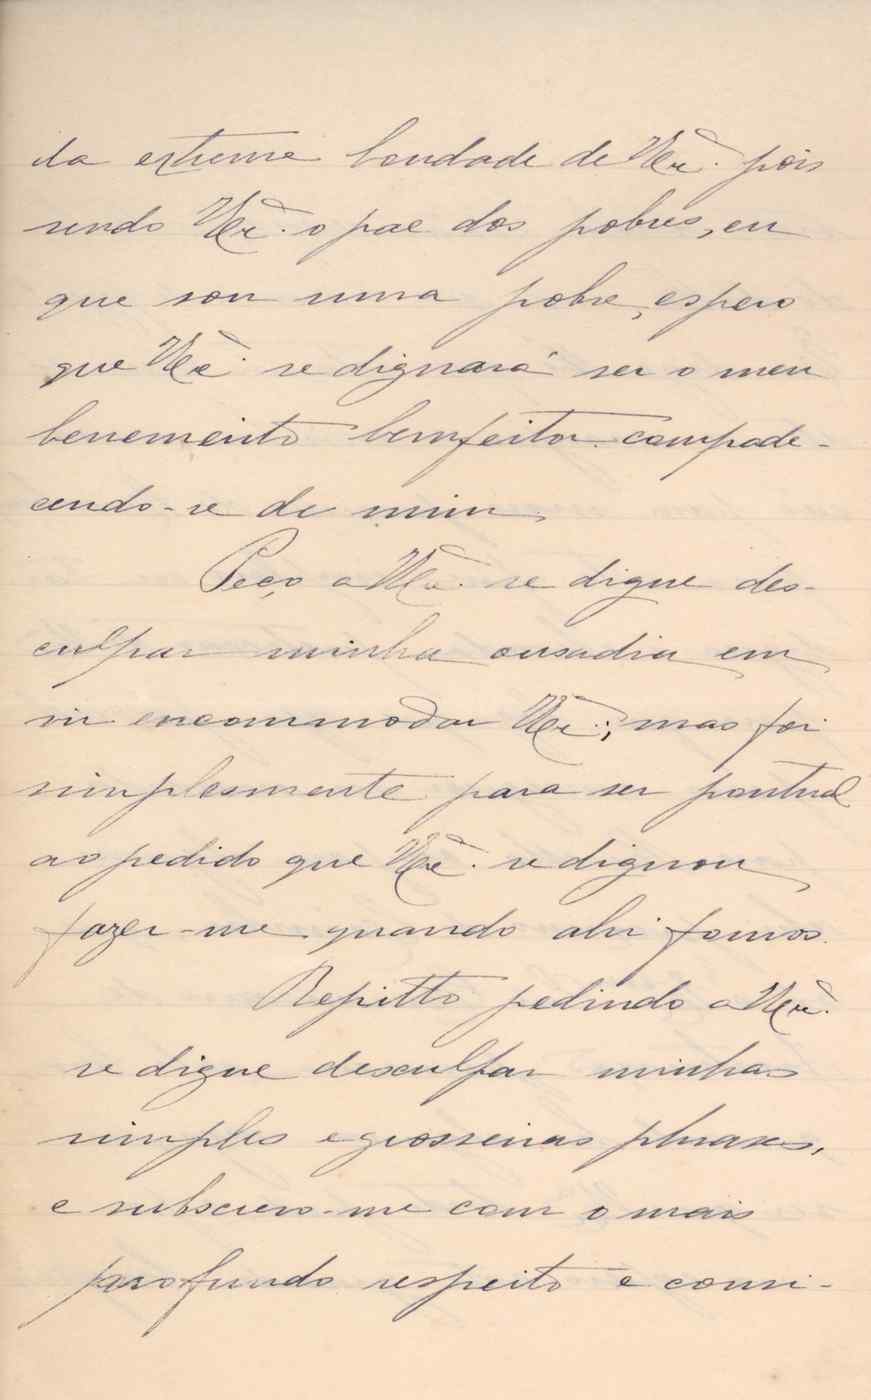 da extreme bondade de V. Ex.ª pois
sendo V. Ex.ª o pae dos pobres, eu
que sou uma pobre, espero
que V. Ex.ª se dignará ser o meu
benemerito bemfeitor compade-
cendo-se de mim.
Peço a V. Ex.ª se digne des-
culpar minha ousadia em
vir encommodar V. Ex.ª; mas foi
simplesmente para ser pontual
ao pedido que V. Ex.ª se dignou
fazer-me quando ahi fomos.
Repitto pedindo a V. Ex.ª
se digne desculpar minhas
simples e grosseiras phrases,
e subscrevo-me com o mais
profundo respeito e consi-